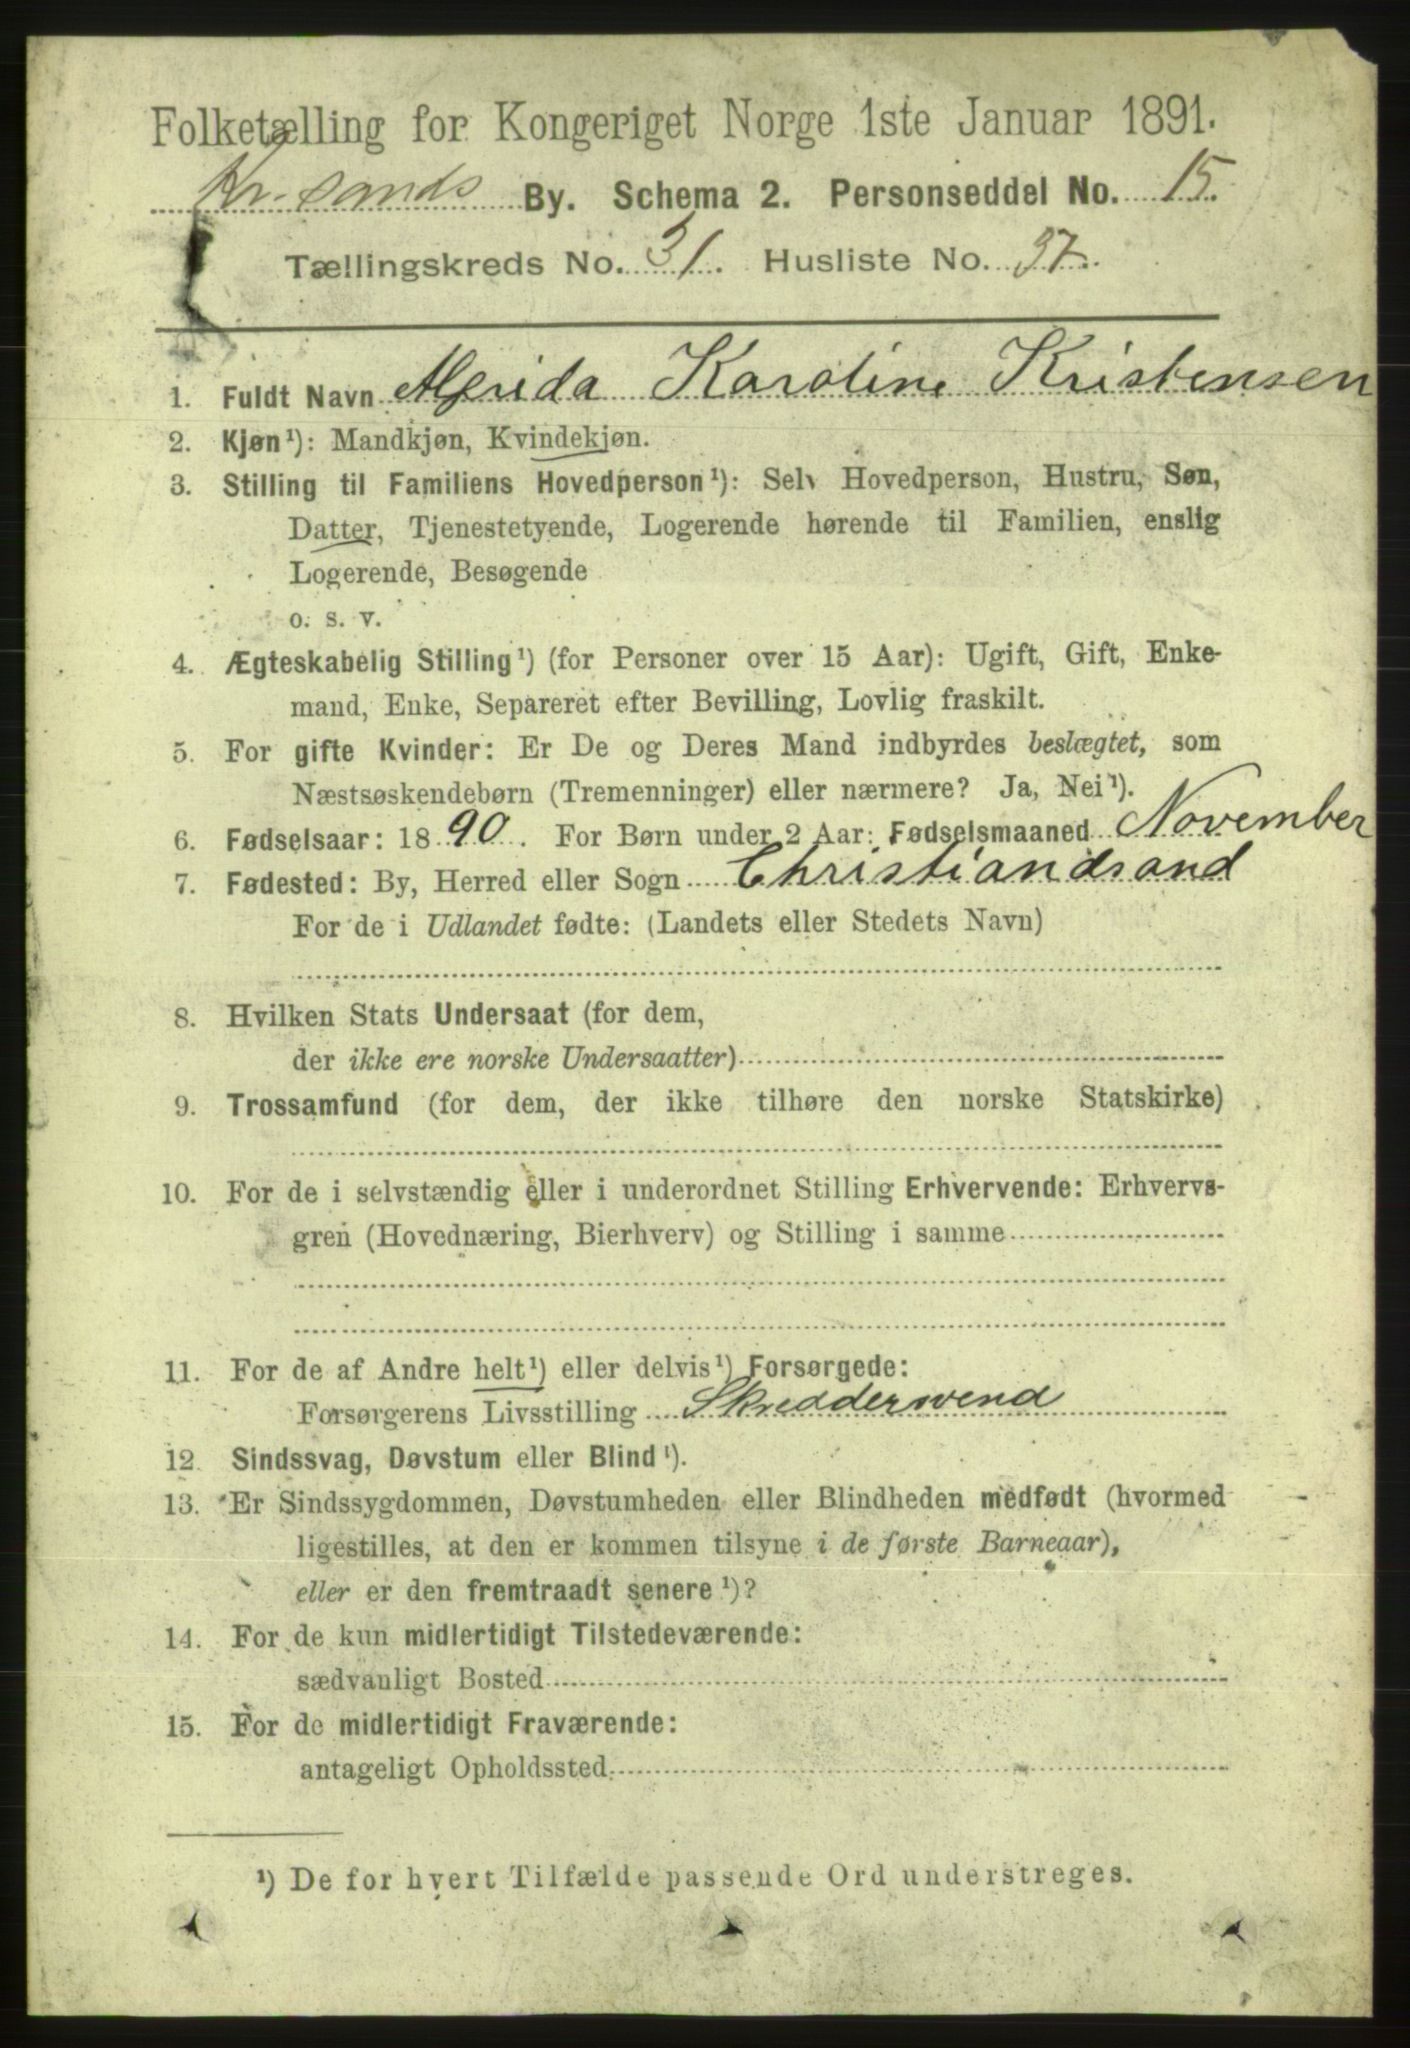 Folketælling for Kongeriget Norge 1ste Januar 1891.
Kr.sands By. Schema 2. Personseddel No. 15.
Tællingskreds No. 31. Husliste No. 37.
1. Fuldt Navn Karoline Kristensen
2. Kjøn¹): Mandkjøn, Kvindekjøn.
3. Stilling til Familiens Hovedperson¹): Selv Hovedperson, Hustru, Søn,
Datter, Tjenestetyende, Logerende hørende til Familien, enslig
Logerende, Besøgende
o. s. v.
4. Ægteskabelig Stilling¹) (for Personer over 15 Aar): Ugift, Gift, Enke-
mand, Enke, Separeret efter Bevilling, Lovlig fraskilt.
5. For gifte Kvinder: Er De og Deres Mand indbyrdes beslægtet, som
Næstsøskendebørn (Tremenninger) eller nærmere? Ja, Nei¹).
6. Fødselsaar: 1890. For Børn under 2 Aar: Fødselsmaaned November
7. Fødested: By, Herred eller Sogn Christiandsand
For de i Udlandet fødte: (Landets eller Stedets Navn)
8. Hvilken Stats Undersaat (for dem,
der ikke ere norske Undersaatter)
9. Trossamfund (for dem, der ikke tilhøre den norske Statskirke)
10. For de i selvstændig eller i underordnet Stilling Erhvervende: Erhvervs-
gren (Hovednæring, Bierhverv) og Stilling i samme
11. For de af Andre helt¹) eller delvis¹) Forsørgede:
Forsørgerens Livsstilling Skreddersvend
12. Sindssvag, Døvstum eller Blind¹).
13. Er Sindssygdommen, Døvstumheden eller Blindheden medfødt (hvormed
ligestilles, at den er kommen tilsyne i de første Barneaar),
eller er den fremtraadt senere¹)?
14. For de kun midlertidigt Tilstedeværende:
sædvanligt Bosted
15. For de midlertidigt Fraværende:
antageligt Opholdssted
¹) De for hvert Tilfælde passende Ord understreges.